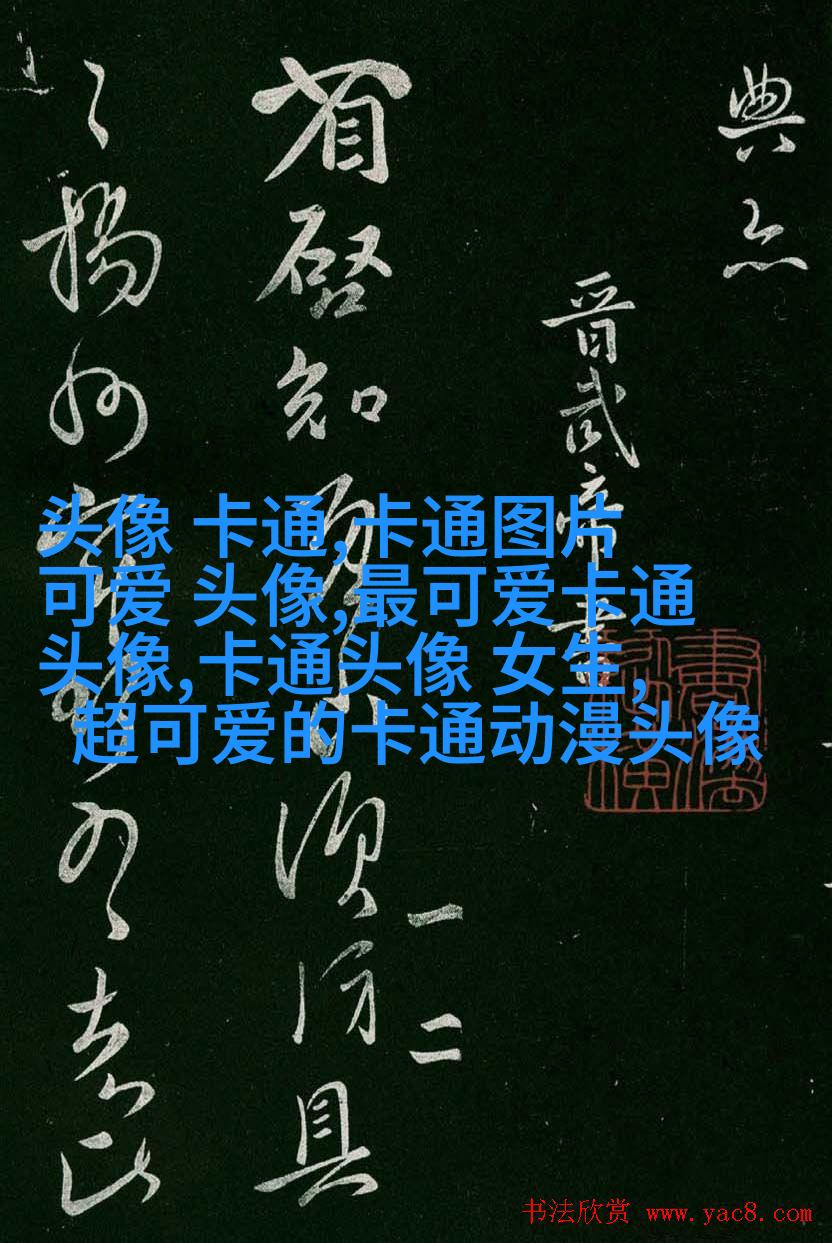 典亦
晉武帝書
一二
省啓知須防具
揚州
頭像 卡通,卡通图片
可爱 头像,最可爱卡通
头像,卡通头像 女生,
超可爱的卡通动漫头像
书法欣赏 www.yac8.com